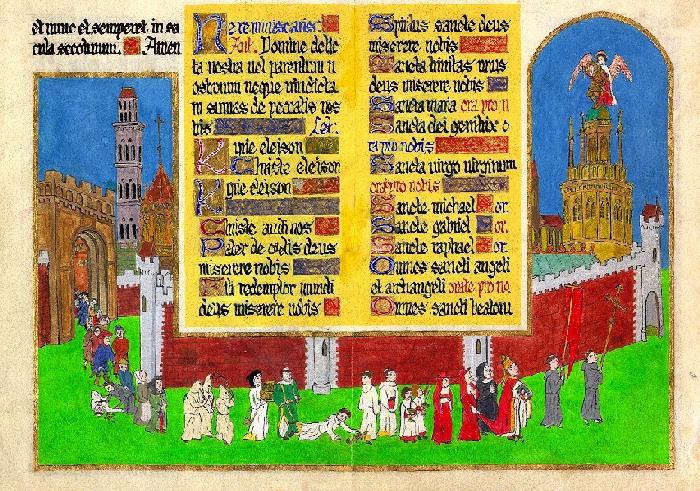 et nunc et semper et in se
cula seculorum. Amen
Ne reminiscaris.
Ant. Domine delic
ta nostra vel parentum n
ostrorum neque vindicta
m sumas de peccatis nos
tris Let.
Kyrie eleison
Christe eleison
Kyrie eleison
Christe audi nos
Pater de celis deus
miserere nobis
Fili redemptor mundi
deus miserere nobis
Spiritus sancte deus
miserere nobis
Sancta trinitas unus
deus miserere nobis
Sancta maria ora pro n
Sancta dei genitrix o
ra pro nobis
Sancta virgo virginum
ora pro nobis
Sancte michael or.
Sancte gabriel or.
Sancte raphael or.
Omnes sancti angeli
et archangeli orate pro no.
Omnes sancti beatorum